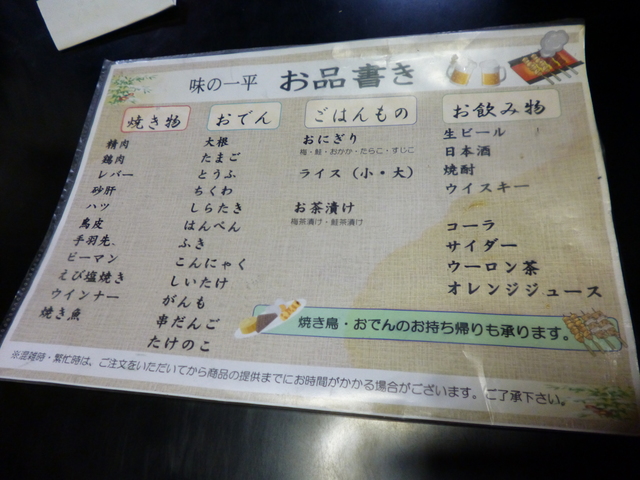 味の一平 お品書き
焼き物
精肉
鶏肉
レバー
砂肝
ハツ
鳥皮
手羽先
ピーマン
えび塩焼き
ウインナー
焼き魚
おでん
大根
たまご
とうふ
ちくわ
しらたき
はんぺん
ふき
こんにゃく
しいたけ
がんも
串だんご
たけのこ
ごはんもの
おにぎり
梅・鮭・おかか・たらこ・すじこ
ライス（小・大）
お茶漬け
梅茶漬け・鮭茶漬け
お飲み物
生ビール
日本酒
焼酎
ウイスキー
コーラ
サイダー
ウーロン茶
オレンジジュース
焼き鳥・おでんのお持ち帰りも承ります。
※混雑時・繁忙時は、ご注文をいただいてから商品の提供までにお時間がかかる場合がございます。ご了承下さい。